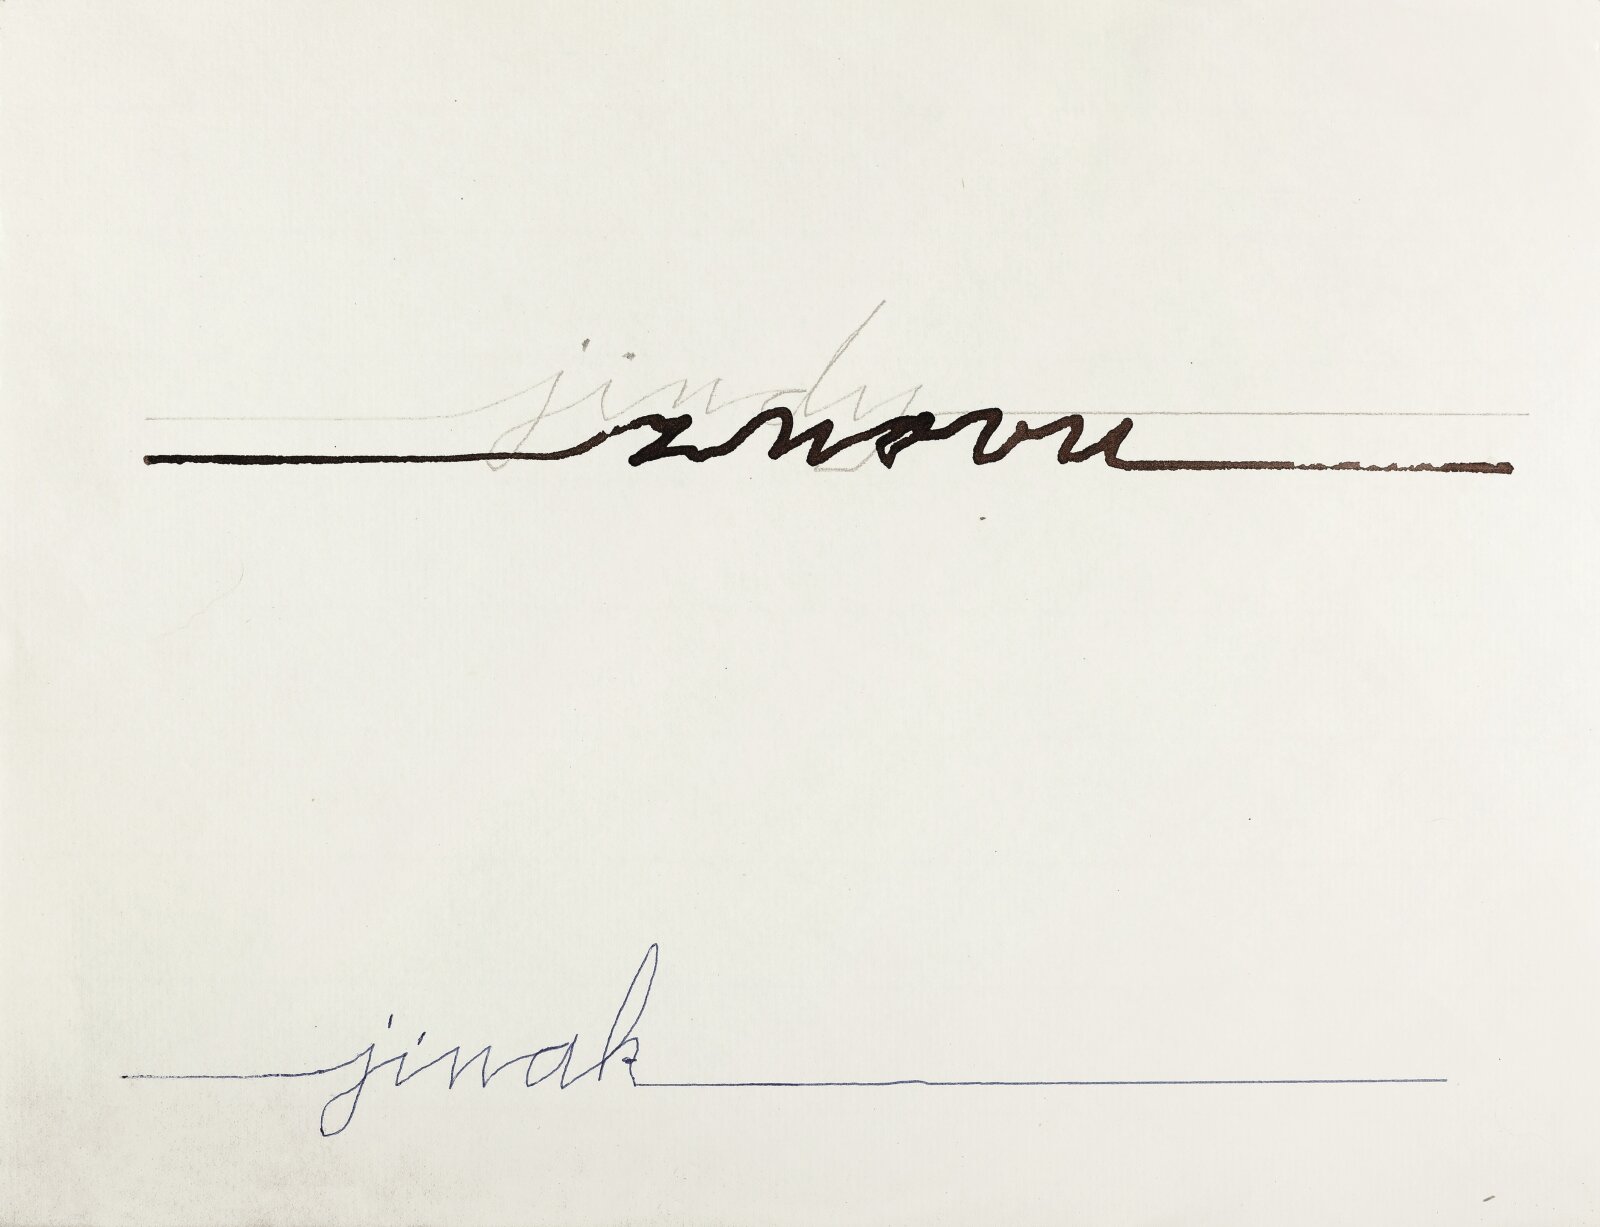 jindy
znovu
jinak